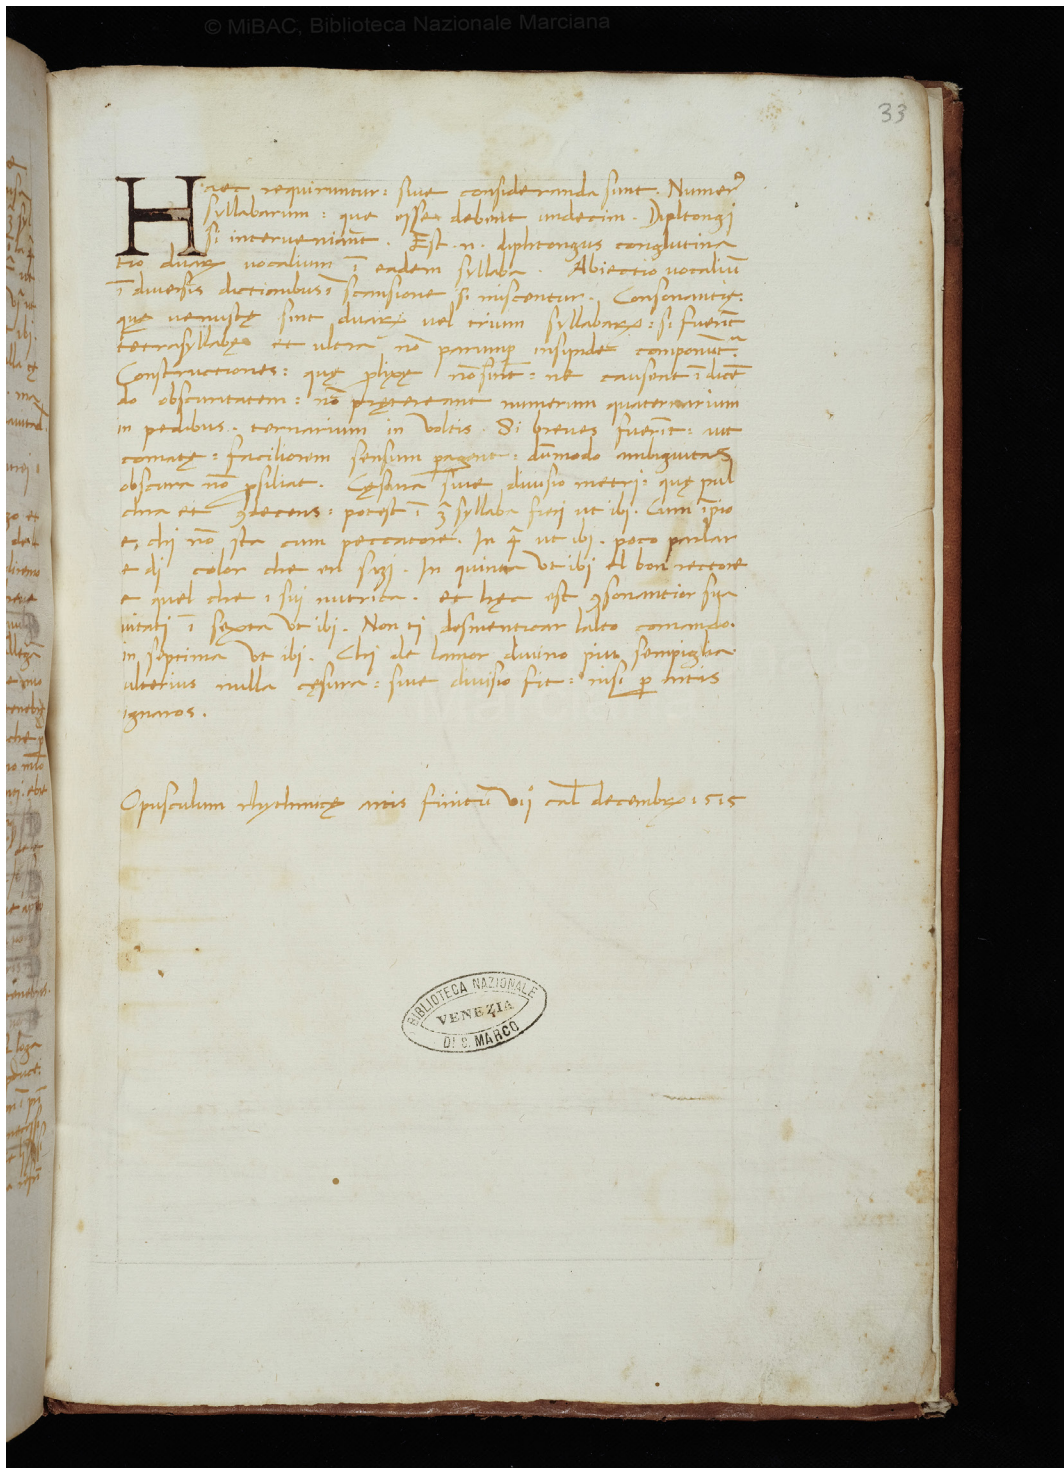 © MiBAC, Biblioteca Nazionale Marciana
33
Haec requiruntur: siue consideranda sunt. Numerꝰ
syllabarum: que esse debent undecim. Dipltongi
si interueniant. Est .n. diphtongus conglutina
tio duaꝝ uocalium ī eadem syllaba. Abiectio uocaliū
ī diuersis dictionibus ī scansione si miscentur. Consonantię:
quę uenustę sint duaꝝ uel trium syllabaꝝ: si fuerīt
tetrasyllabę et ultra nō parump insipide componūt.
Constructiones: quę plixę nō sint: ne causent ī dicē
do obscuritatem: nō prętereant numerum quaternarium
in pedibus. ternarium in Voltis. Si breues fuerīt: ut
comatę: faciliorem sensum pagent: dūmodo ambiguitas
obscura nō psiliat. Cęsura siue diuisio metri: quę pul
chra et ꝯdecens: potest ī 3ᵃ syllaba fieri ut ibi. Cum īpio
e, chi nō sta cum peccatore. In 4ᵃ ut ibi. poco parlar
e di color che en sagi. In quinta Ut ibi el bon rectore
e quel che i suj nutrica. et hęc est ꝯsonantior sua
uitati ī sexta Ut ibi. Non ti domenticar lalto comando.
in septima Ut ibi. Chi de lamor diuino piu
ulterius nulla cęsura: siue diuisio fit: nisi p
ignaros.
Opusculum rhythmicę artis finitū Vij cal decembꝝ 1515
BIBLIOTECA NAZIONALE
VENEZIA
DI S. MARCO